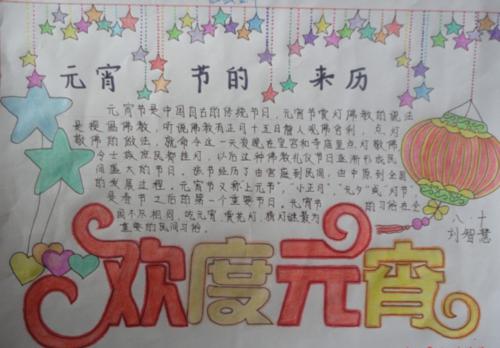 元宵 节的 来历
元宵节是中国自古的传统节日,元宵节赏灯佛教的说法
是提倡佛教,听说佛教有正月十五日僧人观佛舍利,点灯
敬佛的做法,就命令这一天夜晚在皇宫和寺庙里点灯敬佛
令士族庶民都挂灯,以后这种佛教礼仪节日逐渐形成民
间盛大的节日。该节经历了由宫庭到民间,由中原到全国
的发展过程。元宵节又称上元节",小正月","元夕"或"灯节",
是春节之后的第一个重要节日。元宵节 的习俗在全
国不尽相同,吃元宵 赏花灯,猜灯谜最为
重要的民间习俗。
八、十
刘智慧
欢度元宵